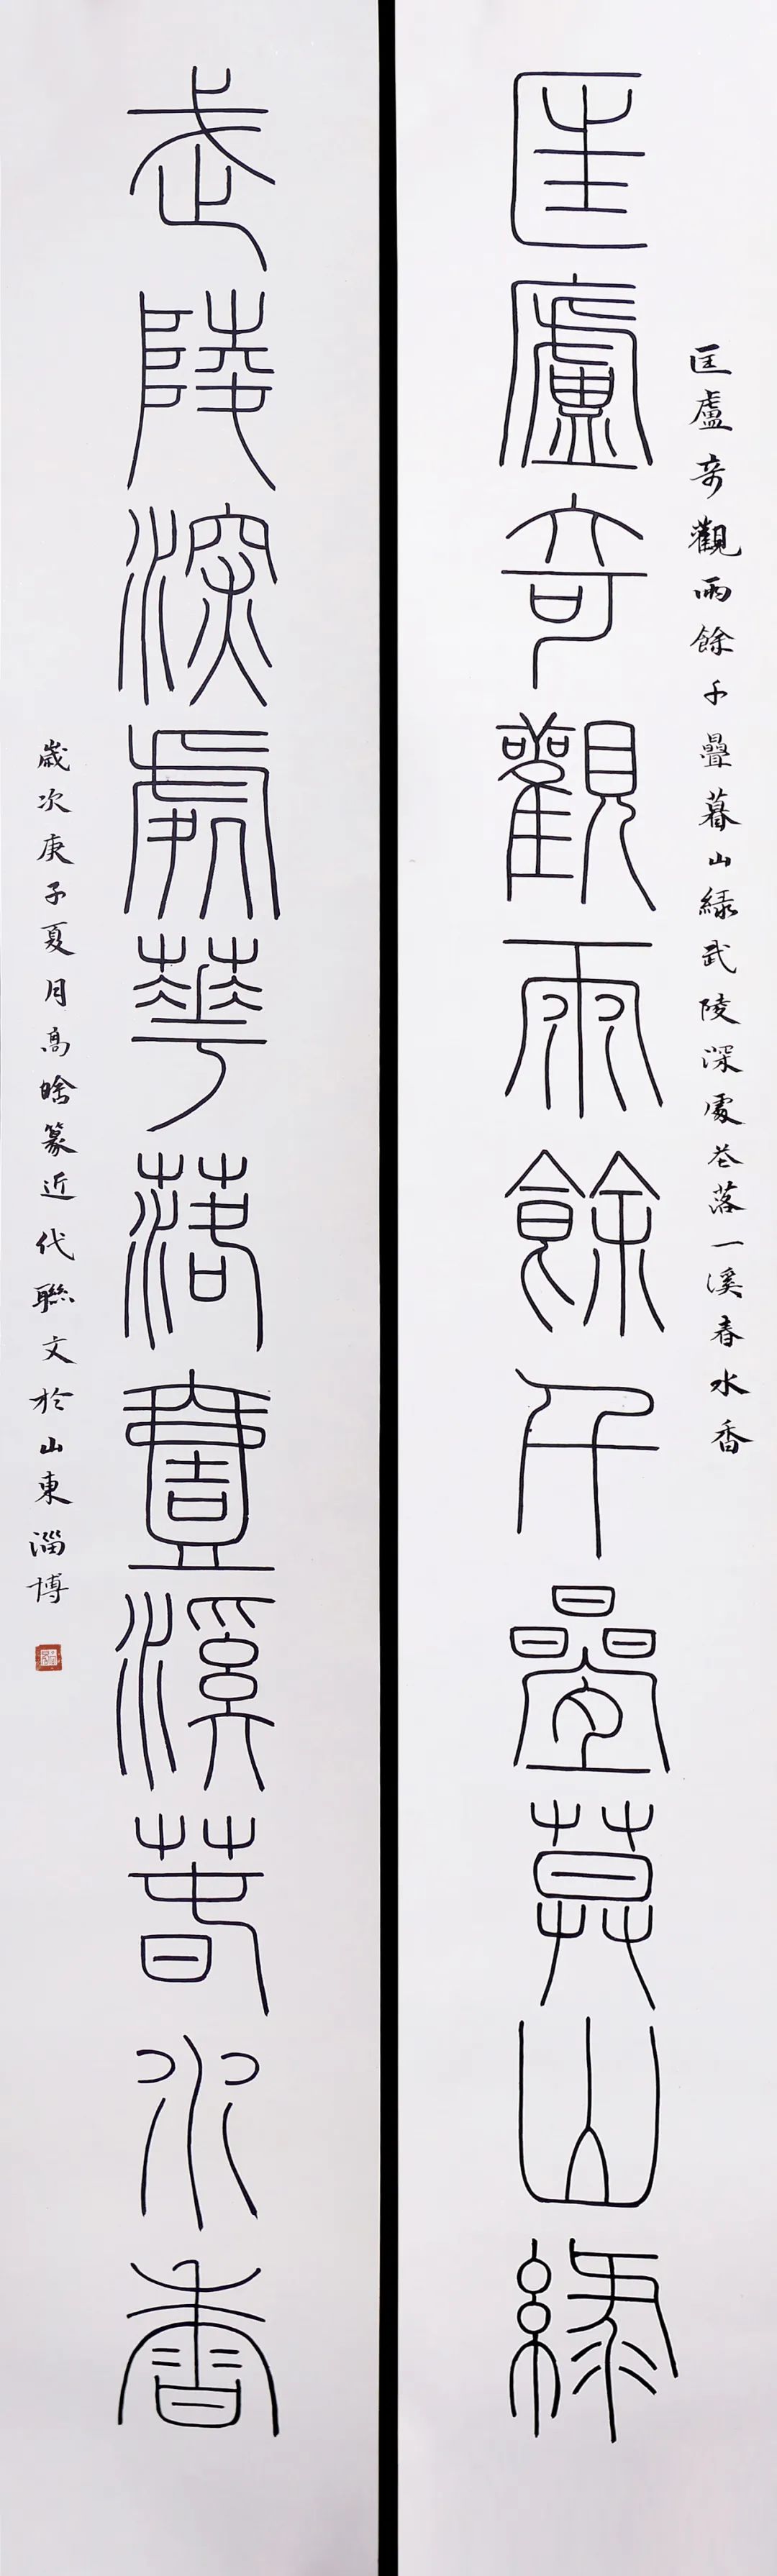 匡盧奇觀雨餘千疊暮山緑武陵深處花落一溪春水香
匡廬奇觀雨餘千疊莫山綠
武陵深處華落壹溪萅水香
歲次庚子夏月高晗篆近代聯文於山東淄博